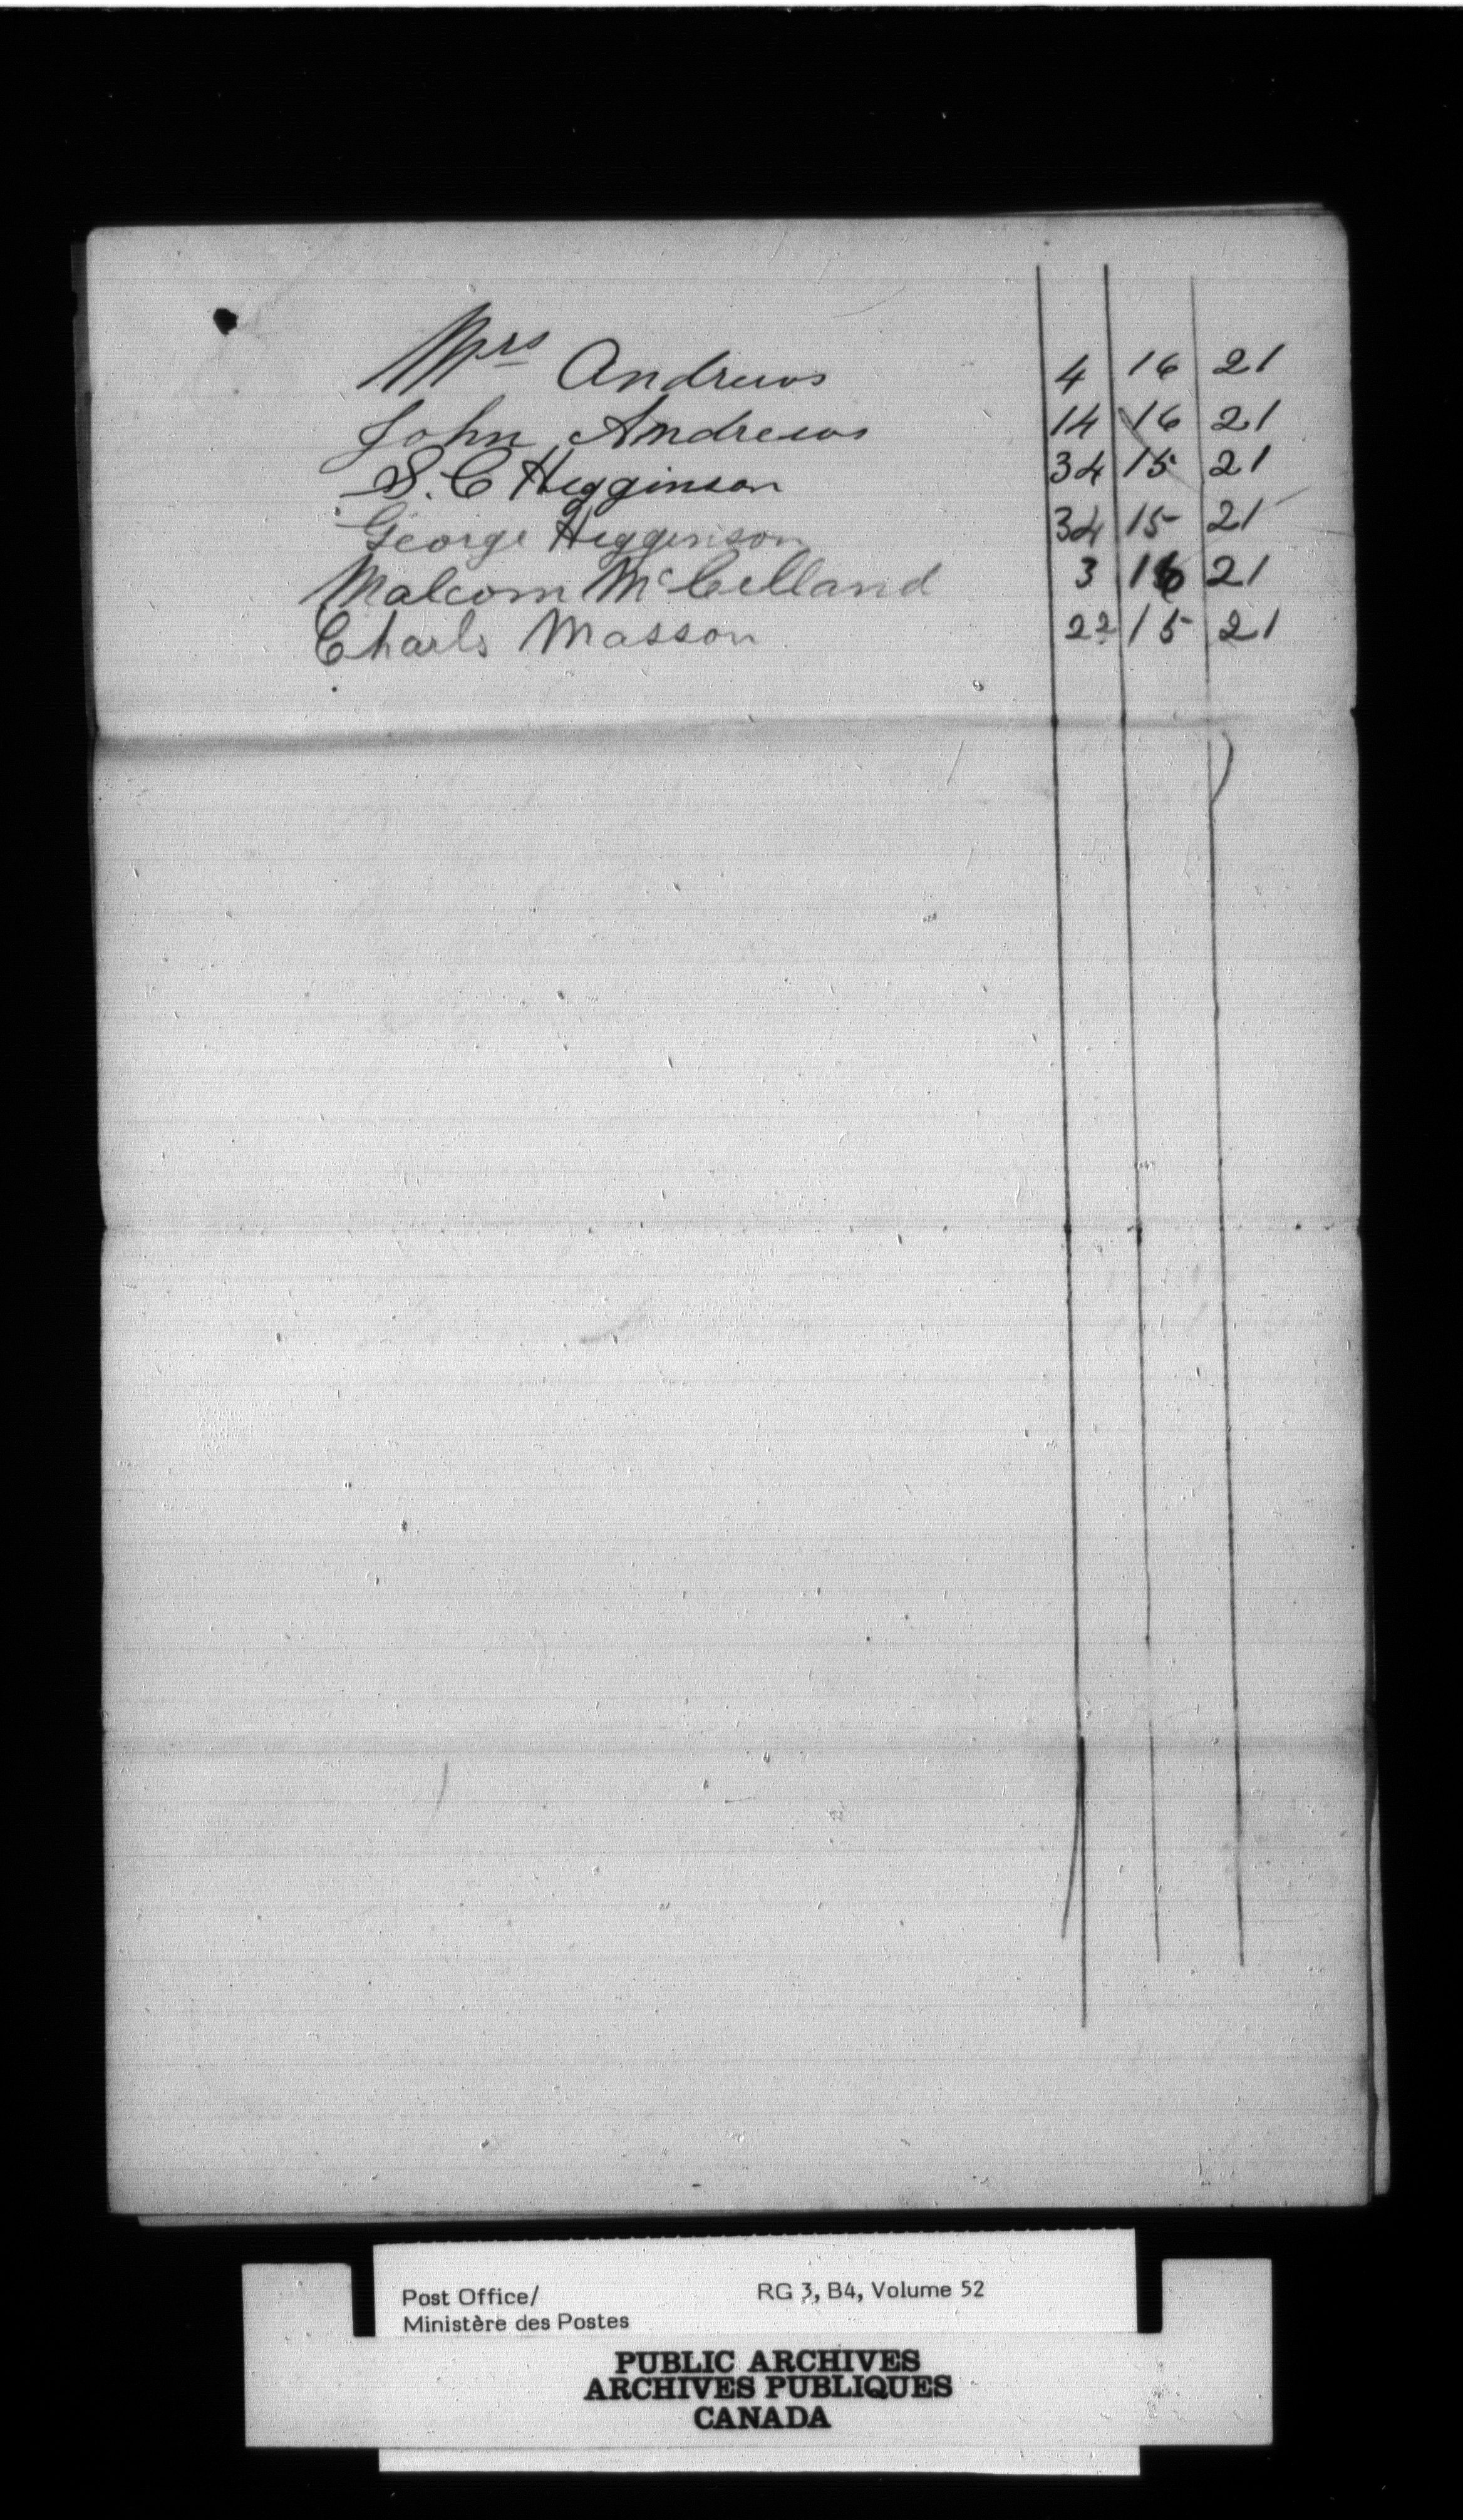 Mrs Andrews 4 16 21
John Andrews 14 16 21
S. C Higginson 34 15 21
George Higginson 34 15 21
Malcom McCelland 3 16 21
Charls Masson 22 15 21
Post Office/ RG 3, B4, Volume 52
Ministère des Postes
PUBLIC ARCHIVES
ARCHIVES PUBLIQUES
CANADA